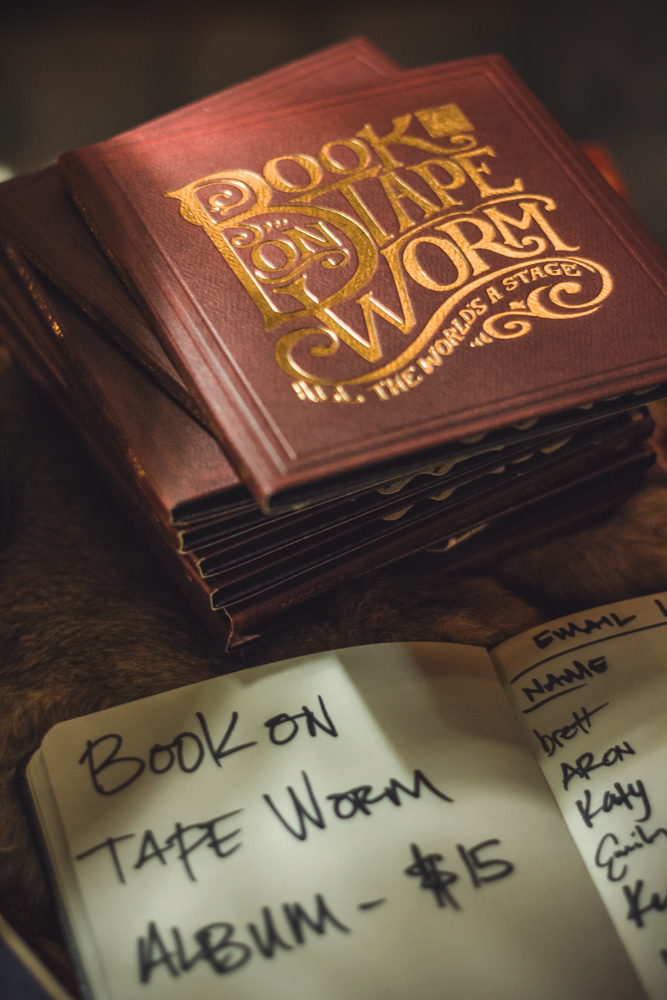 BOOK
ON TAPE
WORM
ALL THE WORLD'S A STAGE
BOOK ON
TAPE WORM
ALBUM - $15
EMAIL
NAME
brett
ARON
Katy
Emily